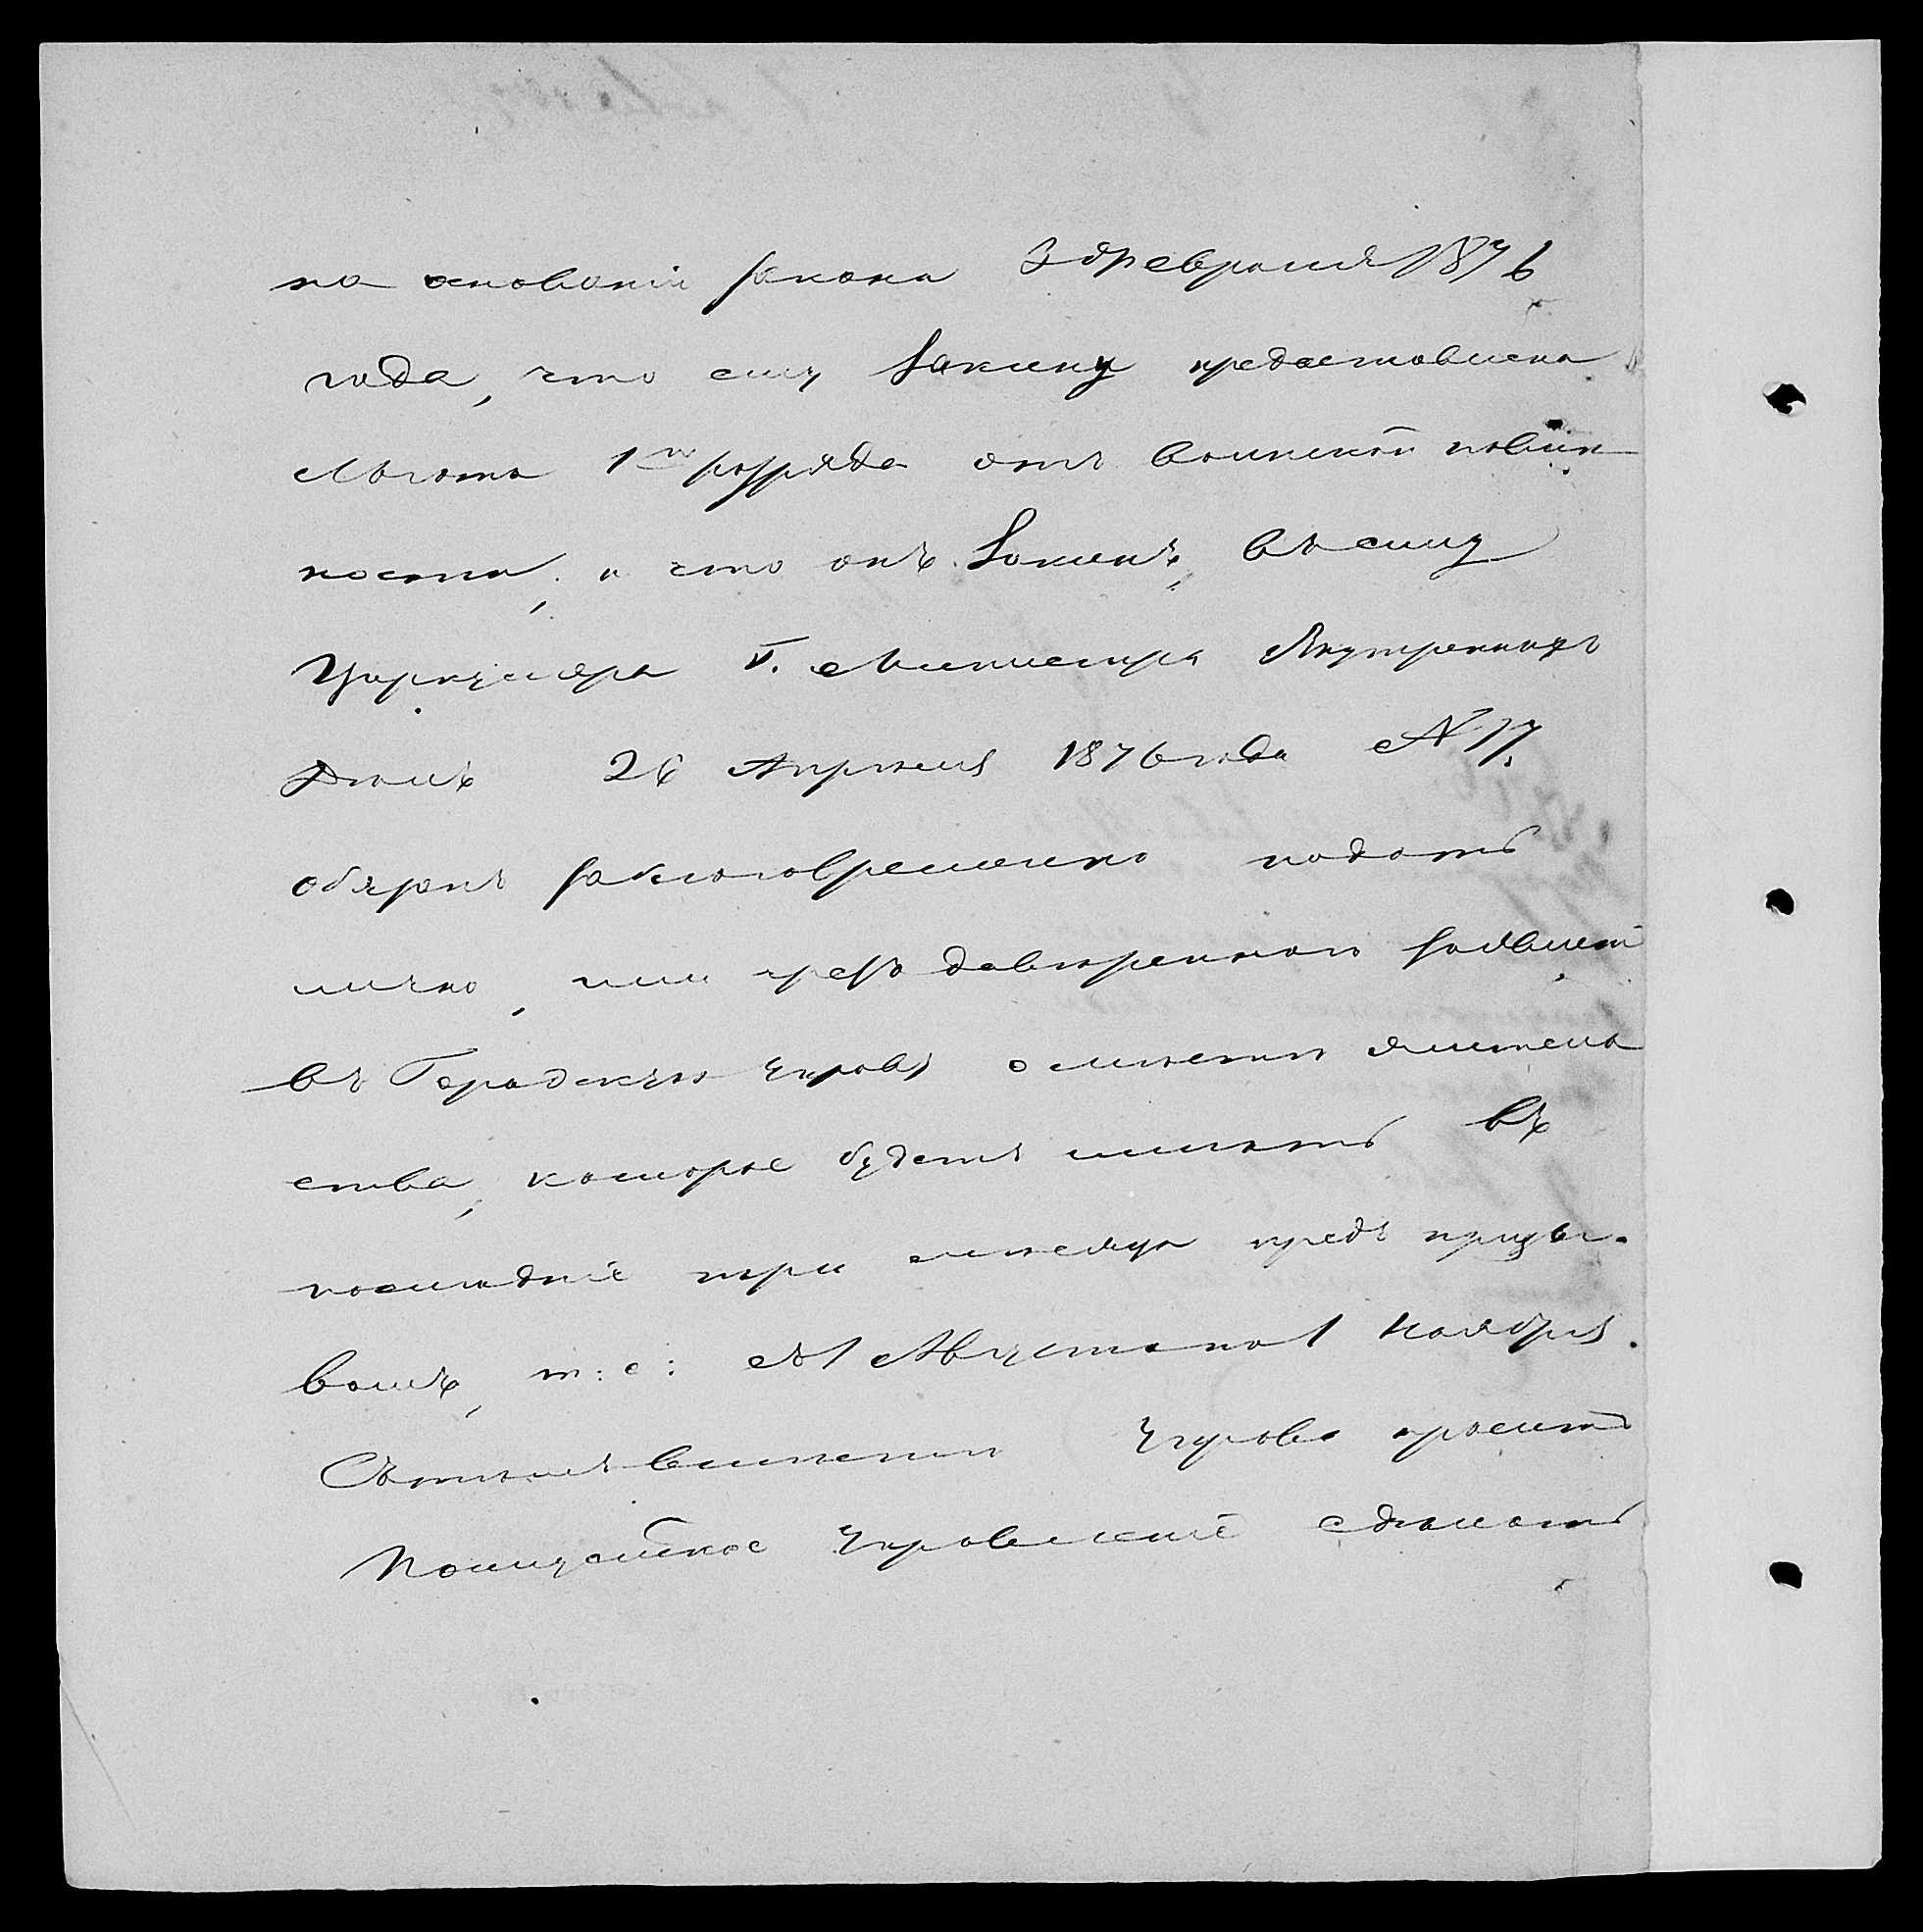 на основаніи закона 3 Февраля 1876
года, что ему Закину предоставлена
льгота 1го разряда отъ воинской повин-
ности, и что онъ Закинъ, въ силу
Циркуляра Г. Министра Внутреннихъ
Дѣлъ 26 Апрѣля 1876 года № 17.
обязанъ заблаговременно подать
лично, или чрезъ довѣреннаго заявленіе
въ Городскую Управу о мѣстѣ жительс-
ства, которое будетъ имѣть въ
послѣдніе три мѣсяца предъ призы-
вомъ, т: е: съ 1 Августа по 1 Ноября.
Съ тѣмъ вмѣстѣ Управа проситъ
Полицейское Управленіе сдѣлать